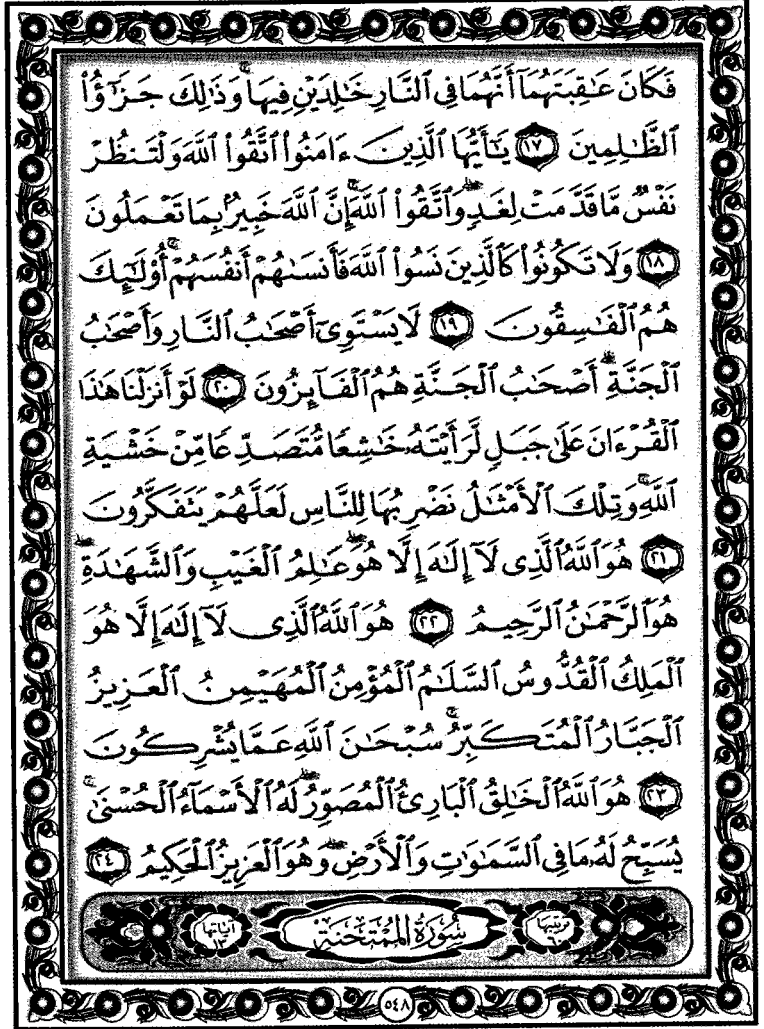 فَكَانَ عَـٰقِبَتَهُمَآ أَنَّهُمَا فِي ٱلنَّارِ خَـٰلِدَيْنِ فِيهَا ۚ وَذَٰلِكَ جَزَٰٓؤُا۟
ٱلظَّـٰلِمِينَ ١٧ يَـٰٓأَيُّهَا ٱلَّذِينَ ءَامَنُوا۟ ٱتَّقُوا۟ ٱللَّهَ وَلْتَنظُرْ
نَفْسٌ مَّا قَدَّمَتْ لِغَدٍ ۖ وَٱتَّقُوا۟ ٱللَّهَ ۚ إِنَّ ٱللَّهَ خَبِيرٌۢ بِمَا تَعْمَلُونَ
١٨ وَلَا تَكُونُوا۟ كَٱلَّذِينَ نَسُوا۟ ٱللَّهَ فَأَنسَىٰهُمْ أَنفُسَهُمْ ۚ أُو۟لَـٰٓئِكَ
هُمُ ٱلْفَـٰسِقُونَ ١٩ لَا يَسْتَوِىٓ أَصْحَـٰبُ ٱلنَّارِ وَأَصْحَـٰبُ
ٱلْجَنَّةِ ۚ أَصْحَـٰبُ ٱلْجَنَّةِ هُمُ ٱلْفَآئِزُونَ ٢٠ لَوْ أَنزَلْنَا هَـٰذَا
ٱلْقُرْءَانَ عَلَىٰ جَبَلٍ لَّرَأَيْتَهُۥ خَـٰشِعًا مُّتَصَدِّعًا مِّنْ خَشْيَةِ
ٱللَّهِ ۚ وَتِلْكَ ٱلْأَمْثَـٰلُ نَضْرِبُهَا لِلنَّاسِ لَعَلَّهُمْ يَتَفَكَّرُونَ
٢١ هُوَ ٱللَّهُ ٱلَّذِى لَآ إِلَـٰهَ إِلَّا هُوَ ۖ عَـٰلِمُ ٱلْغَيْبِ وَٱلشَّهَـٰدَةِ ۖ
هُوَ ٱلرَّحْمَـٰنُ ٱلرَّحِيمُ ٢٢ هُوَ ٱللَّهُ ٱلَّذِى لَآ إِلَـٰهَ إِلَّا هُوَ
ٱلْمَلِكُ ٱلْقُدُّوسُ ٱلسَّلَـٰمُ ٱلْمُؤْمِنُ ٱلْمُهَيْمِنُ ٱلْعَزِيزُ
ٱلْجَبَّارُ ٱلْمُتَكَبِّرُ ۚ سُبْحَـٰنَ ٱللَّهِ عَمَّا يُشْرِكُونَ
٢٣ هُوَ ٱللَّهُ ٱلْخَـٰلِقُ ٱلْبَارِئُ ٱلْمُصَوِّرُ ۖ لَهُ ٱلْأَسْمَآءُ ٱلْحُسْنَىٰ ۚ
يُسَبِّحُ لَهُۥ مَا فِى ٱلسَّمَـٰوَٰتِ وَٱلْأَرْضِ ۖ وَهُوَ ٱلْعَزِيزُ ٱلْحَكِيمُ ٢٤
ترتيبها ٦٠ سُورَةُ المُمْتَحِنَةِ آياتها ١٣
٥٤٨